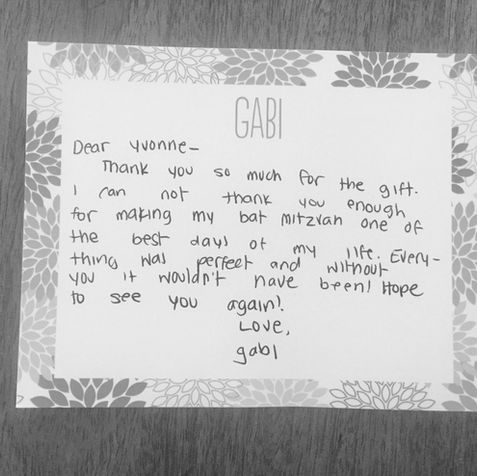 GABI
Dear Yvonne-
Thank you so much for the gift.
I can not thank you enough
for making my bat mitzvah one of
the best days of my life. Every-
thing was perfect and without
you it wouldn't have been! Hope
to see you again!
Love,
gabi